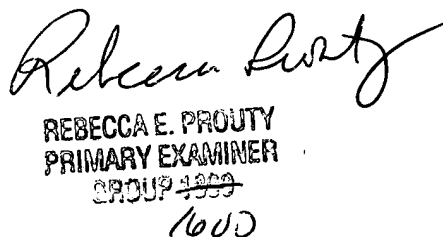 Rebecca Prouty
REBECCA E. PROUTY
PRIMARY EXAMINER
GROUP
1600